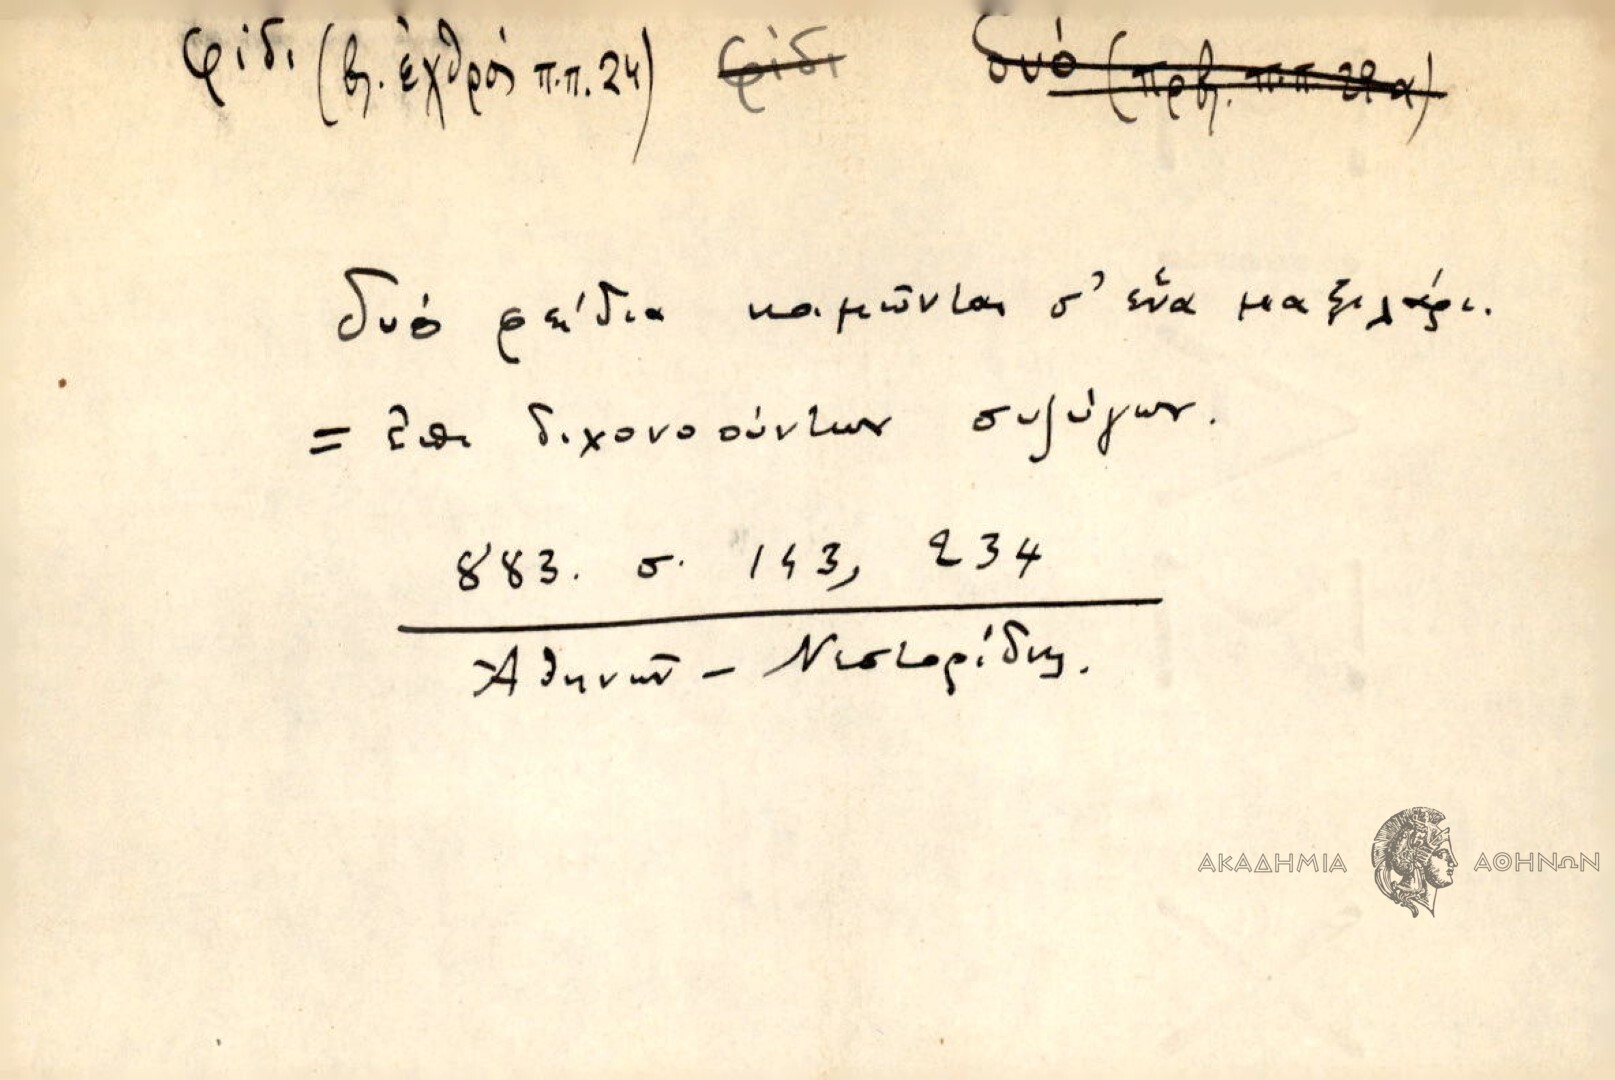 φίδι (βλ. ἐχθρός π.π. 24) φίδι δυό (πρβλ. π.π. 22α)
Δυό φείδια κοιμῶνται σ' ἕνα μαξιλάρι.
= ἐπι διχονοούντων συζύγων.
883. σ. 143, 234
Ἀθηνῶν - Νεστορίδης.
ΑΚΑΔΗΜΙΑ ΑΘΗΝΩΝ